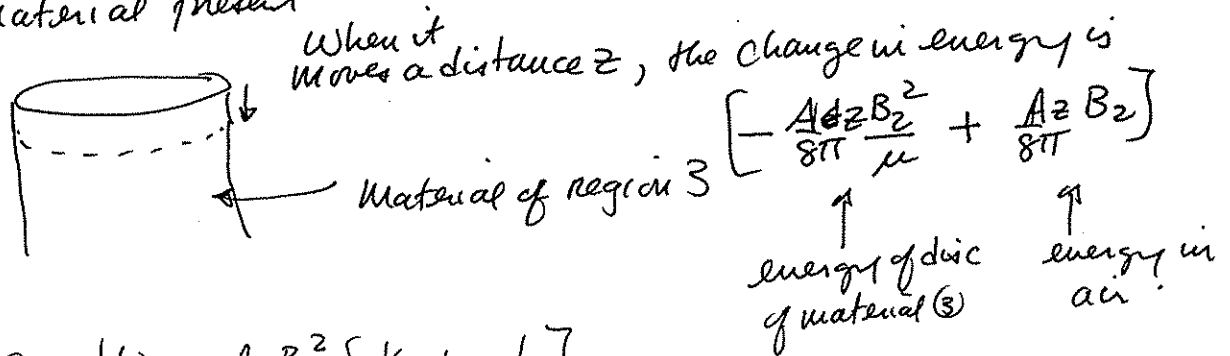 material present
When it
moves a distance z, the change in energy is
[- Adz B₂²/8π μ + Az/8π B₂]
Material of region 3
energy of disc
of material ③
energy in
air.